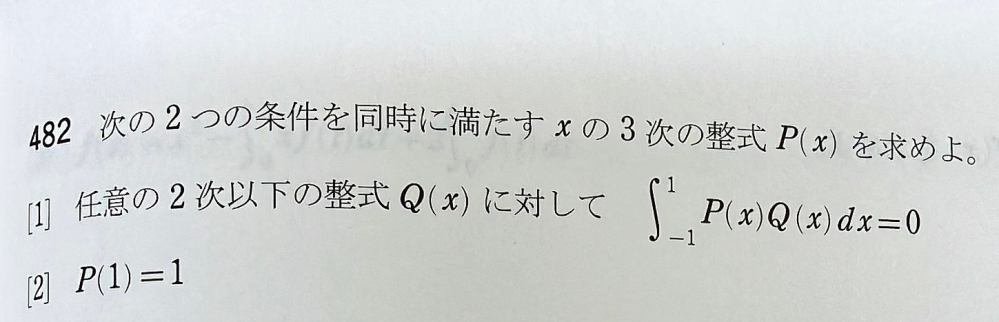 482 次の2つの条件を同時に満たす x の3次の整式 P(x) を求めよ。
[1] 任意の2次以下の整式 Q(x) に対して ∫_{-1}^{1} P(x)Q(x)dx=0
[2] P(1)=1